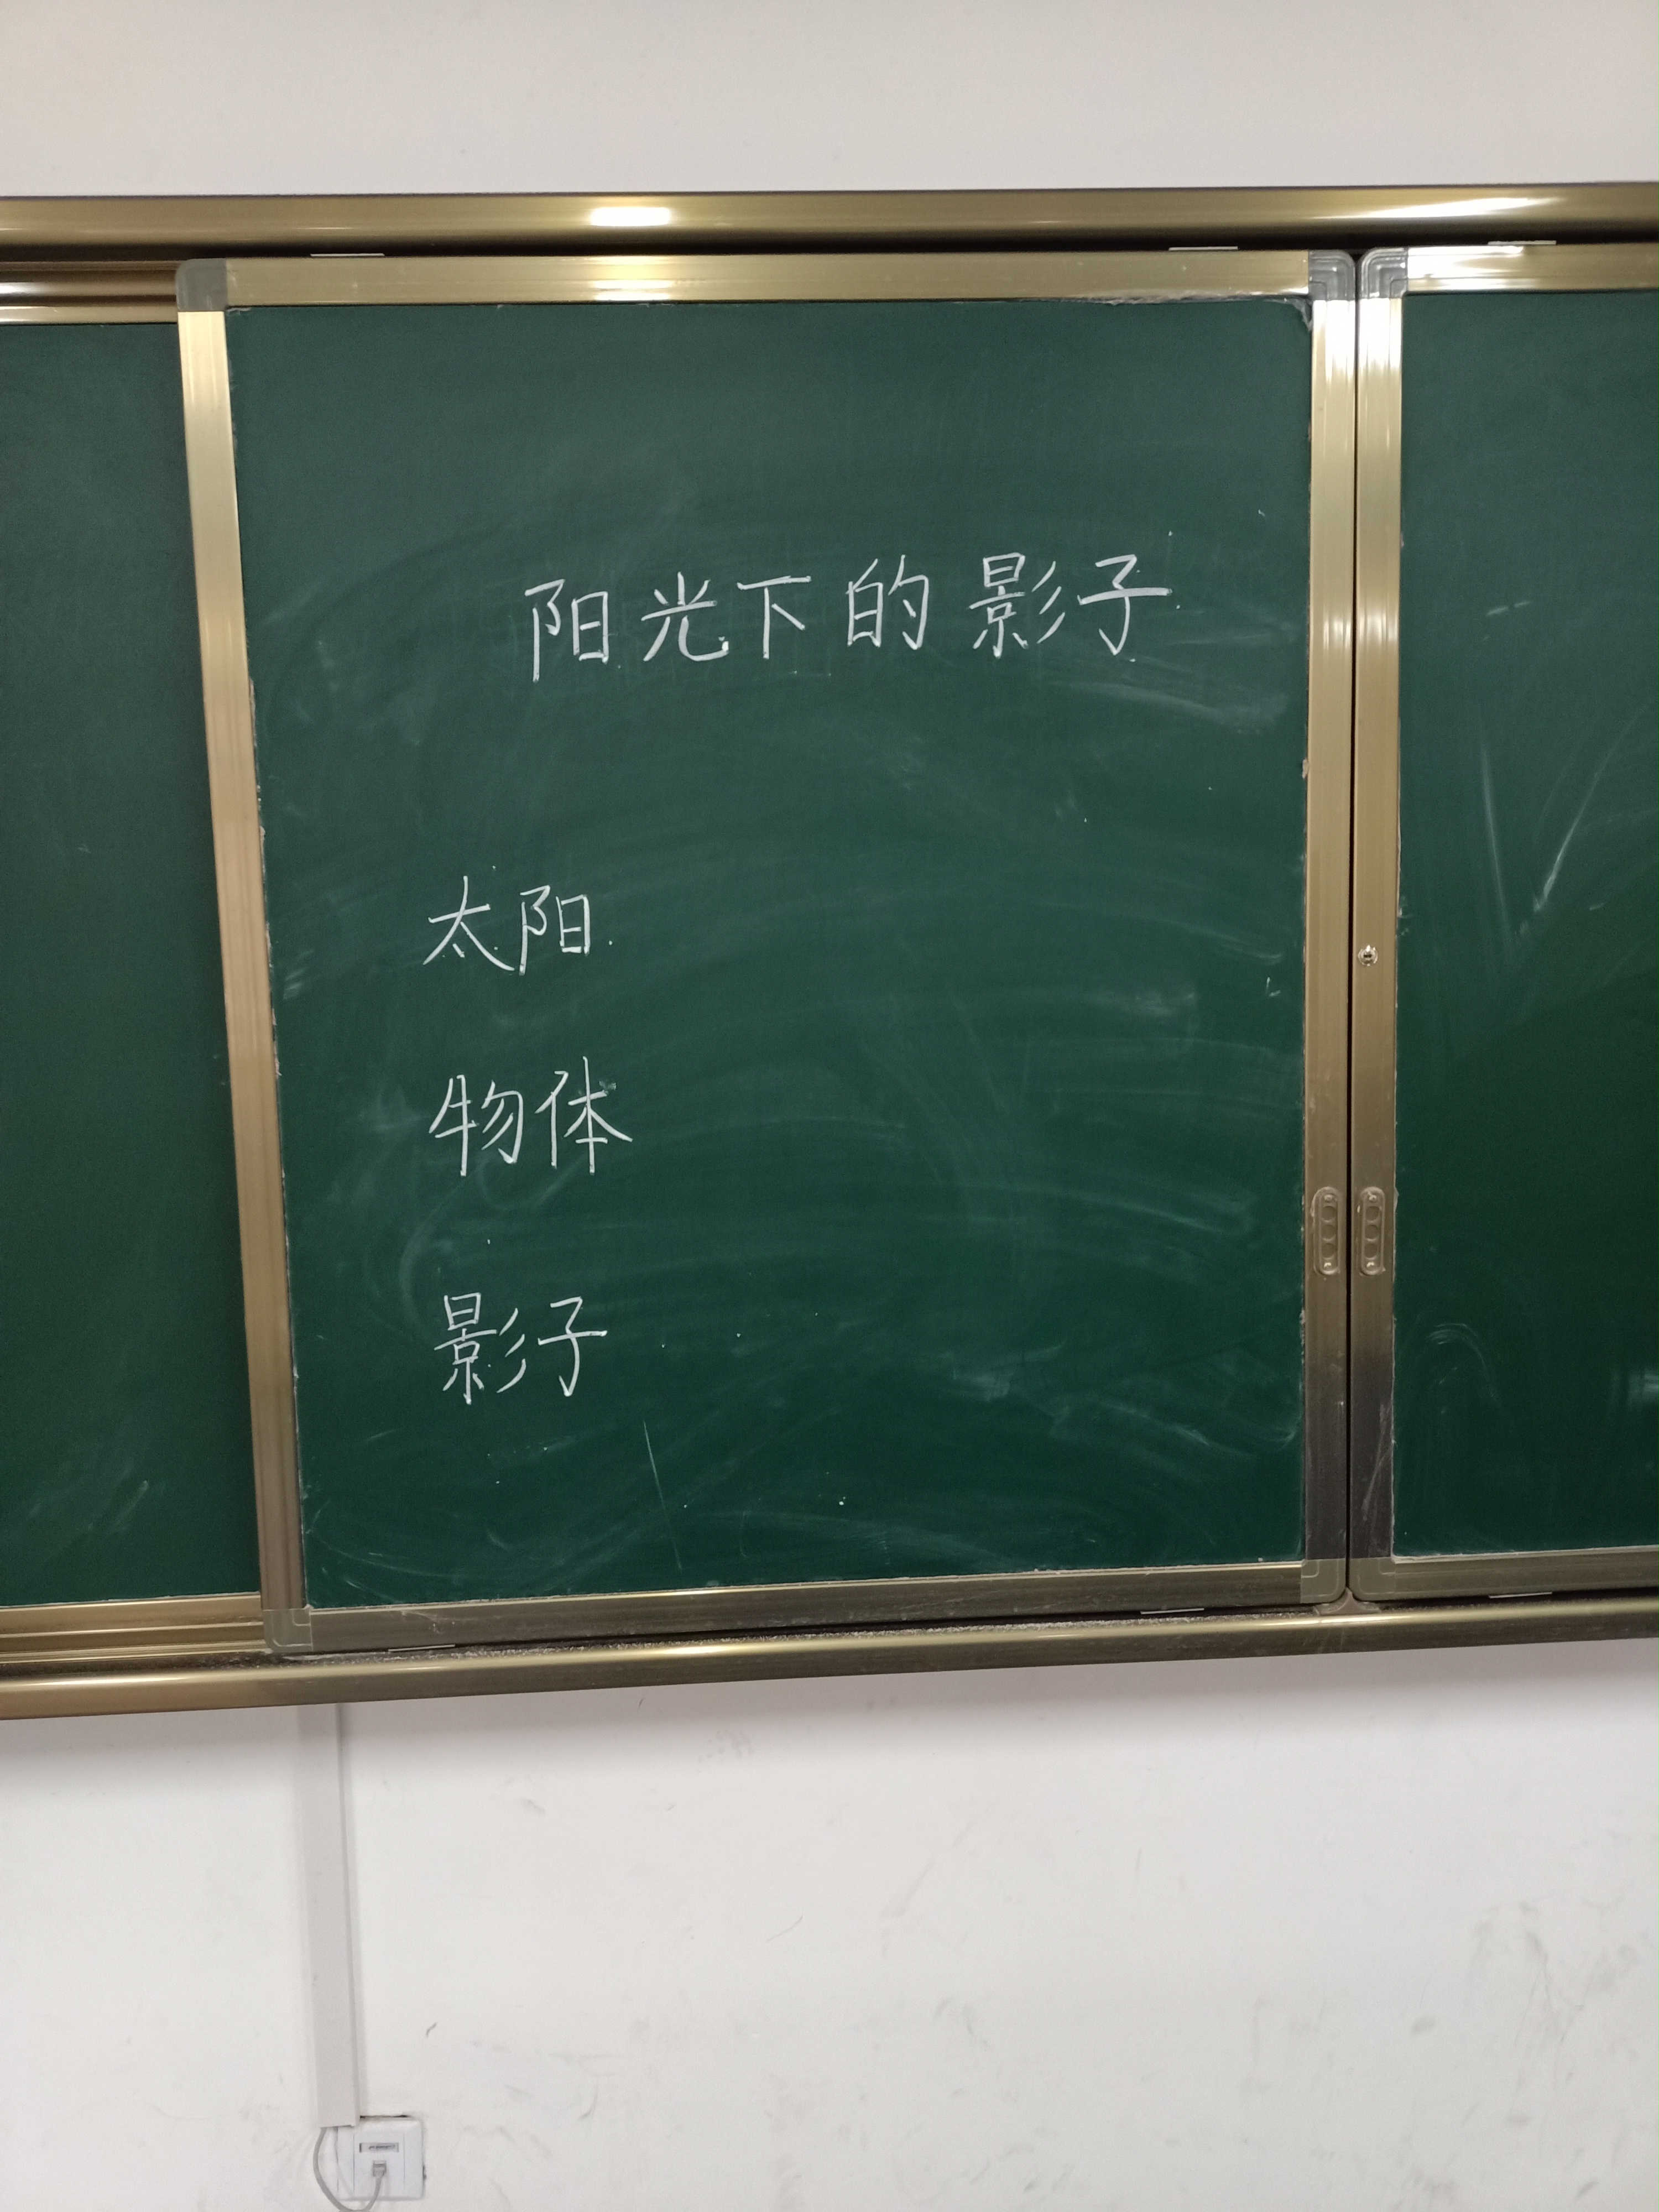 阳光下的影子
太阳
物体
影子